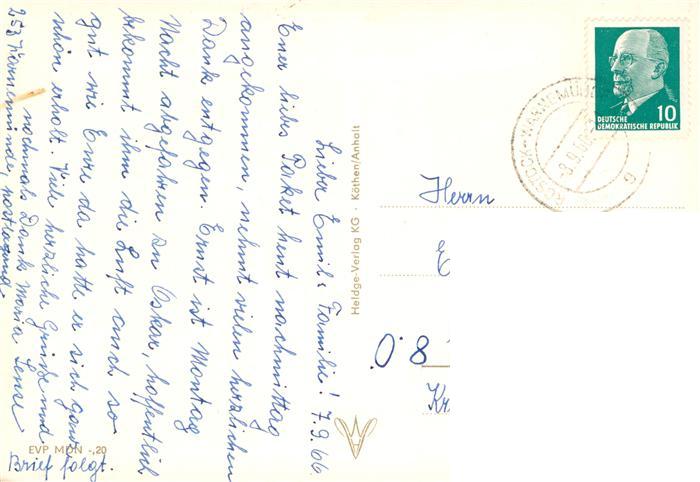 Liebe Emil's Familie! 7.9.66.
Euer liebes Paket heut nachmittag
angekommen, nehmt vielen herzlichen
Dank entgegen. Ernst ist Montag
Nacht abgefahren zu Oskar, hoffentlich
bekommt ihm die Luft auch so
gut wie Eure da hatte er sich ganz
schön erholt. Viele herzliche Grüße und
nochmals Dank Maria
253 Warnemünde, postlagernd
Brief folgt.
EVP MDN -,20
Heldge-Verlag KG · Köthen/Anhalt
DEUTSCHE
DEMOKRATISCHE REPUBLIK
10
ROSTOCK-WARNEMÜNDE
Herrn
E
08
Kr